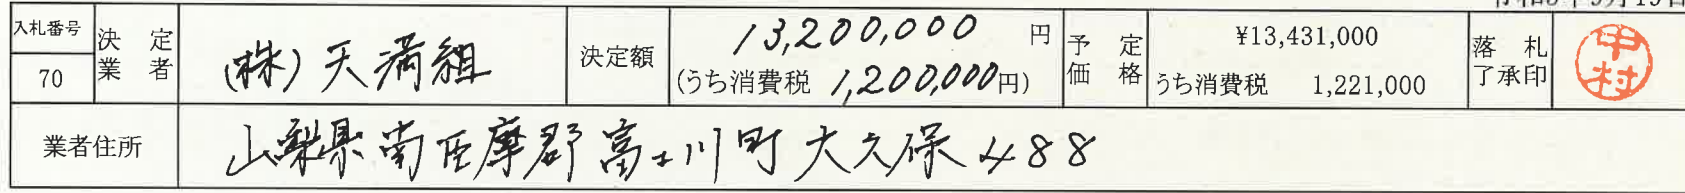 入札番号
70
決定業者
(株)天満組
決定額
13,200,000 円
(うち消費税 1,200,000円)
予定価格
¥13,431,000
うち消費税 1,221,000
落札了承印
中村
業者住所
山梨県南巨摩郡富士川町大久保488